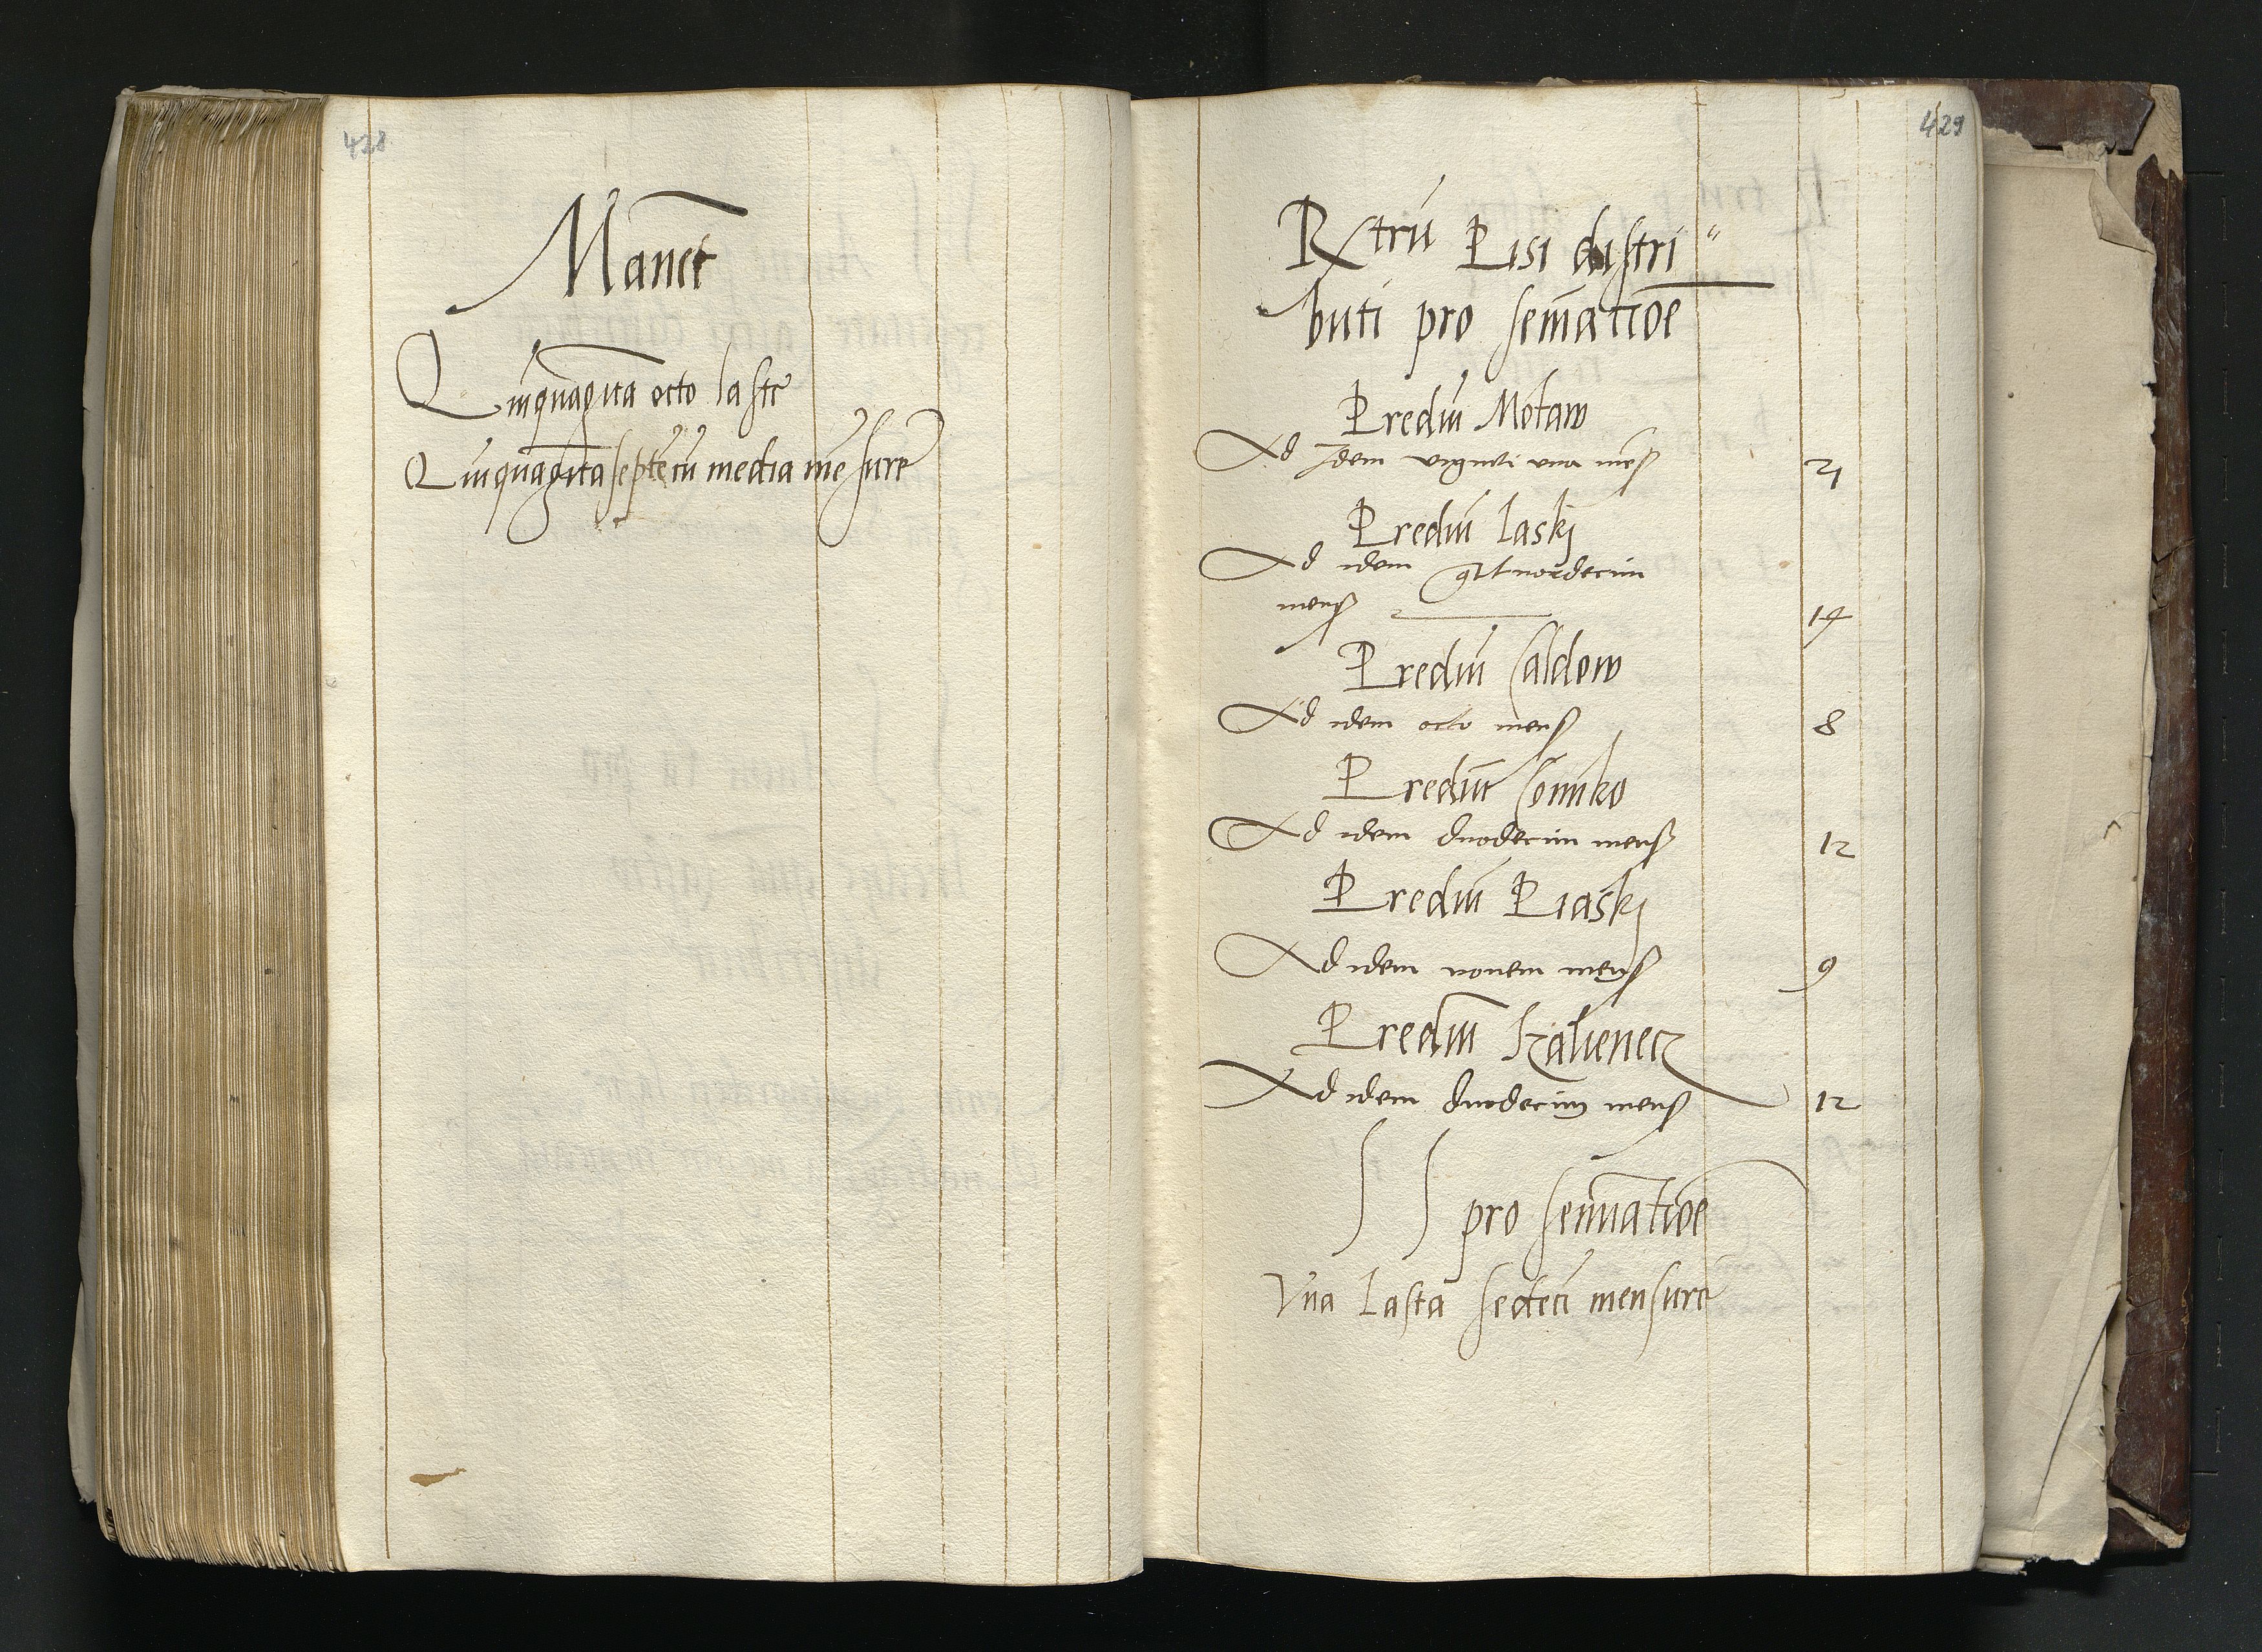 428
Manet
Quinquagīta octo laste
Quinquagīta septē cū media mēsure
429
Rtrū Pisi distri"
buti pro semīatiōe
Prediū Motaw
Ad Idem viginti una mens 21
Prediū laskj
Ad idem qttuordecim
mens 14
Prediū Saldow
Ad idem octo mens 8
Prediū Somko
Ad idem duodecim mens 12
Prediū Piaskj
Ad idem novem mens 9
Prediū Kalienecz
Ad idem duodecim mens 12
SS pro semīatiōe
Una lasta sedecī mensure